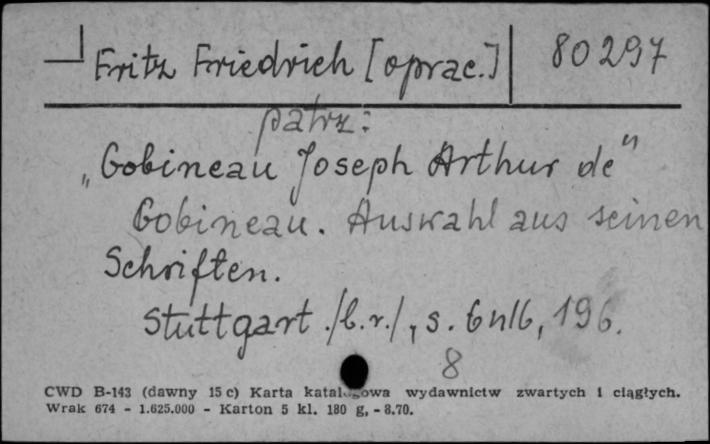 Fritz Friedrich [oprac.] 80297
patrz:
„Gobineau Joseph Arthur de"
Gobineau. Auswahl aus seinen
Schriften.
Stuttgart /b.r./, s. 6 nlb, 196.
8
CWD B-143 (dawny 15 c) Karta katalogowa wydawnictw zwartych i ciągłych.
Wrak 674 - 1.625.000 - Karton 5 kl. 180 g, - 8.70.